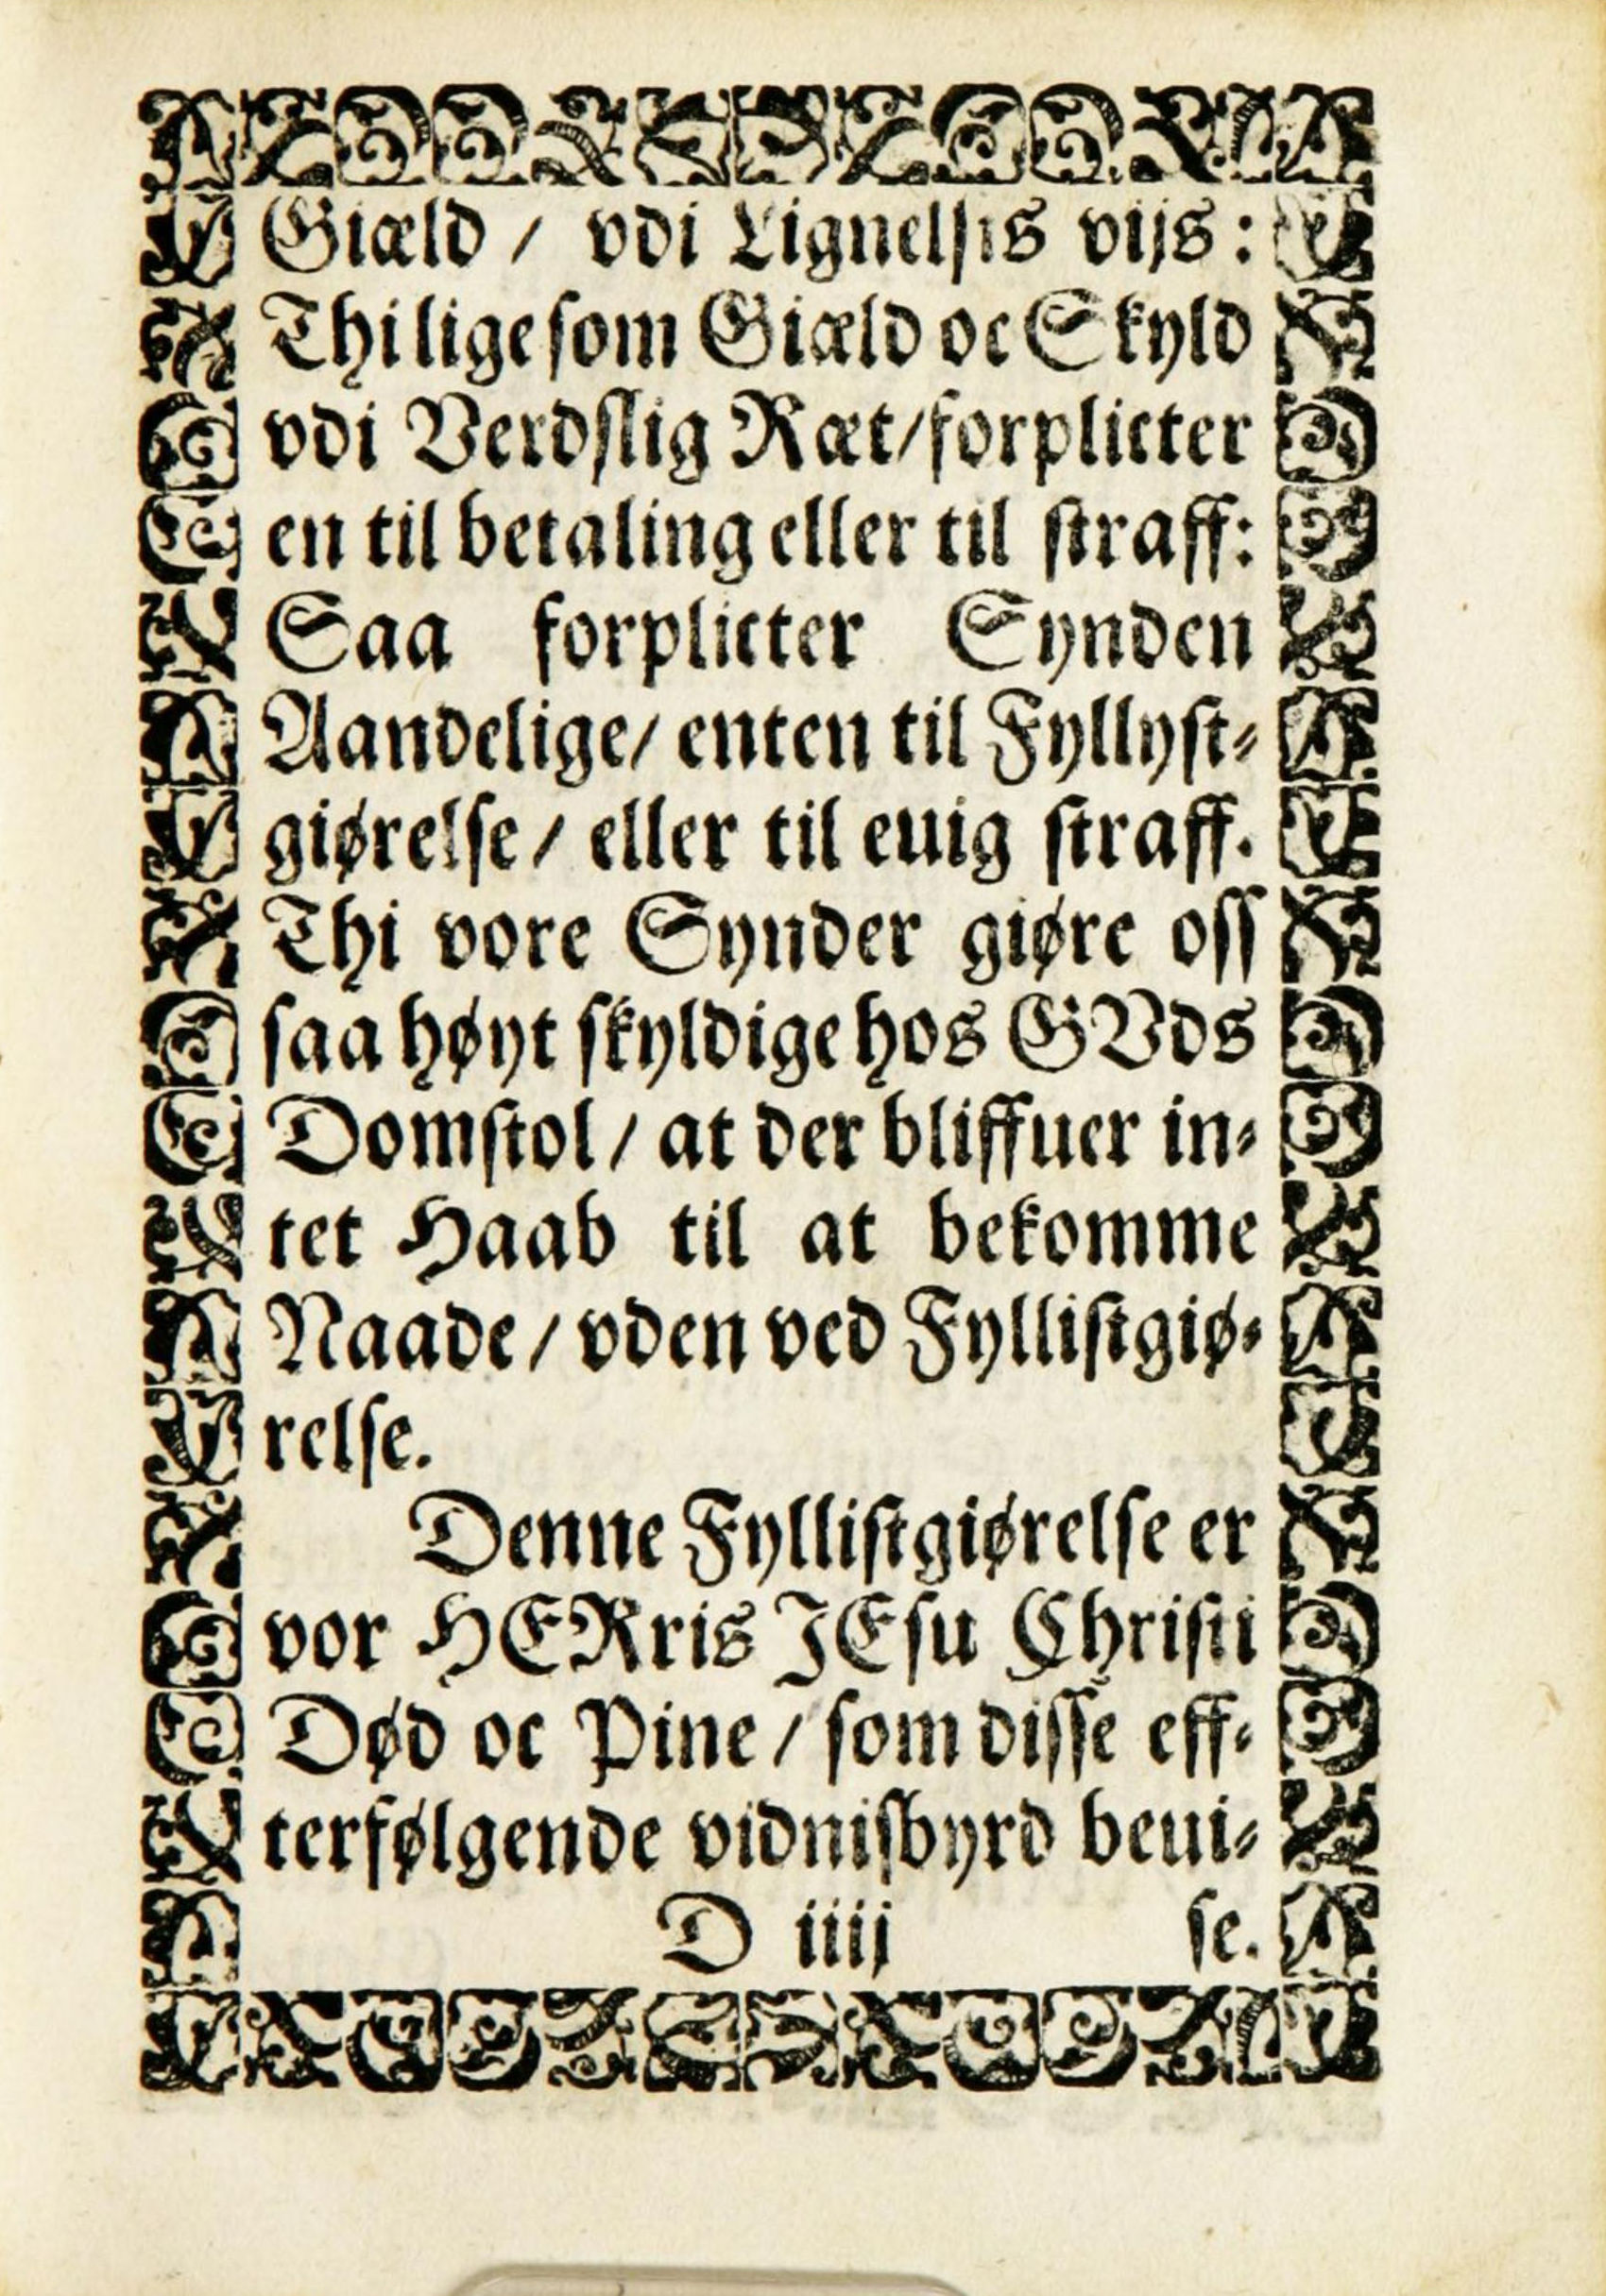 Giæld / vdi Lignelsis vijs :
Thi lige som Giæld oc Skyld
vdi Verdslig Ræt / forplicter
en til betaling eller til straff:
Saa forplicter Synden
Aandelige / enten til Fyllyst⸗
giørelse / eller til euig straff.
Thi vore Synder giøre oss
saa høyt skyldige hos GVds
Domstol / at der bliffuer in⸗
tet Haab til at bekomme
Naade / vden ved Fyllistgiø⸗
relse.
Denne Fyllistgiørelse er
vor HERris JEsu Christi
Død oc Pine / som disse eff⸗
terfølgende vidnisbyrd beui⸗
D iiij se.